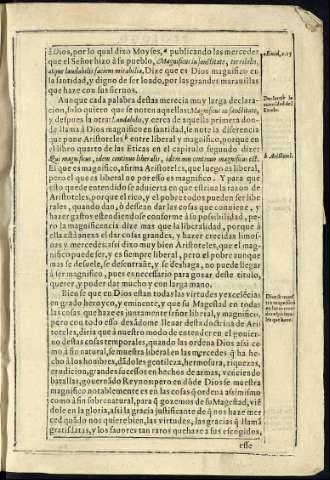 à Dios, por lo qual dixo Moyses, ª publicando las mercedes
que el Señor hizo à su pueblo, Magnificus in sanctitate, terribilis,
atque laudabilis faciens mirabilia, Dize que es Dios magnifico en
la santidad, y digno de ser loado, por las grandes marauillas
que haze con sus sieruos.
Aunque cada palabra destas merecia muy larga declara-
cion, solo quiero que se noten aquellas: Magnificus in sanctitate,
y despues la otra: laudabilis, y cerca de aquella primera don-
de llama à Dios magnifico en santidad, se note la diferencia
que pone Aristoteles b entre liberal y magnifico, porque en
el libro quarto de las Eticas en el capitulo segundo dize:
Qui magnificus, idem continuo liberalis, idem non continuo magnificus est.
El que es magnifico, afirma Aristoteles, que luego es liberal,
pero el que es liberal no por esso es magnifico. Y para que
esto quede entendido se aduierta en que estriua la razon de
Aristoteles, porque el rico, y el pobre todos pueden ser libe-
rales, quando dan, ò dessean dar las cosas que conuiene, y
hazer gastos estendiendose conforme à su possibilidad, pe-
ro la magnificencia dize mas que la liberalidad, porque à
ella està anexa el dar cosas grandes, y hazer crecidas limos-
nas y mercedes: assi dixo muy bien Aristoteles, que el mag-
nifico puede ser, y es siempre liberal, pero el pobre aunque
mas se desuele, se desentrañe, y se deshaga, no puede llegar
à ser magnifico, pues es necessario para gozar deste titulo,
querer, y poder dar mucho y con larga mano.
Bien se que en Dios estan todas las virtudes y excelēcias
en grado heroyco, y eminente, y que su Magestad en todas
las cosas que haze es juntamente señor liberal, y magnifico,
pero con todo esso dexādome lleuar desta doctrina de Aris-
toteles, diria que à nuestro modo de entender en el gouier-
no destas cosas temporales, quando las ordena Dios assi co-
mo à fin natural, se muestra liberal en las mercedes q̃ ha he-
cho à los hombres, dādoles gentileza, hermosura, riquezas,
erudicion, grandes sucessos en hechos de armas, venciendo
batallas, gouernādo Reynos: pero en dōde Dios se muestra
magnifico notablemente es en las cosas q̃ ordena assi mismo
como à fin sobrenatural, para q̃ gozemos de su Magestad, viē
dole en la gloria, assi la gracia justificante de q̃ nos haze mer
ced quādo nos quiere bien, las virtudes, las gracias q̃ llamā
gratis datas, y los fauores tan raros que haze à sus escogidos,
esse
a Exod. c. 15
b Aristotel.